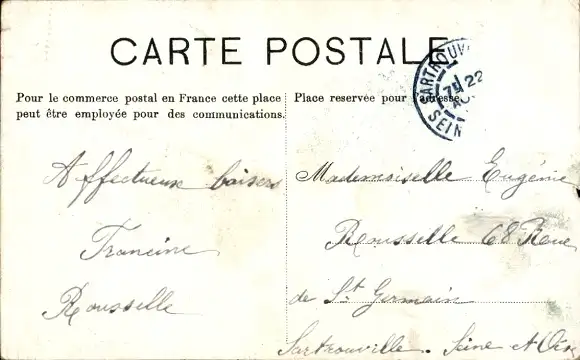 CARTE POSTALE
SARTROUV
22
SEIN
Pour le commerce postal en France cette place
peut être employée pour des communications.
Place reservée pour l'adresse.
Affectueux baisers
Francine
Rousselle
Mademoiselle Eugénie
Rousselle 68 Rue
de St Germain
Sartrouville. Seine et Oise